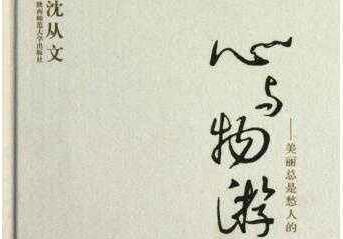 沈从文
陕西师范大学出版社
心与物游
——美丽总是愁人的